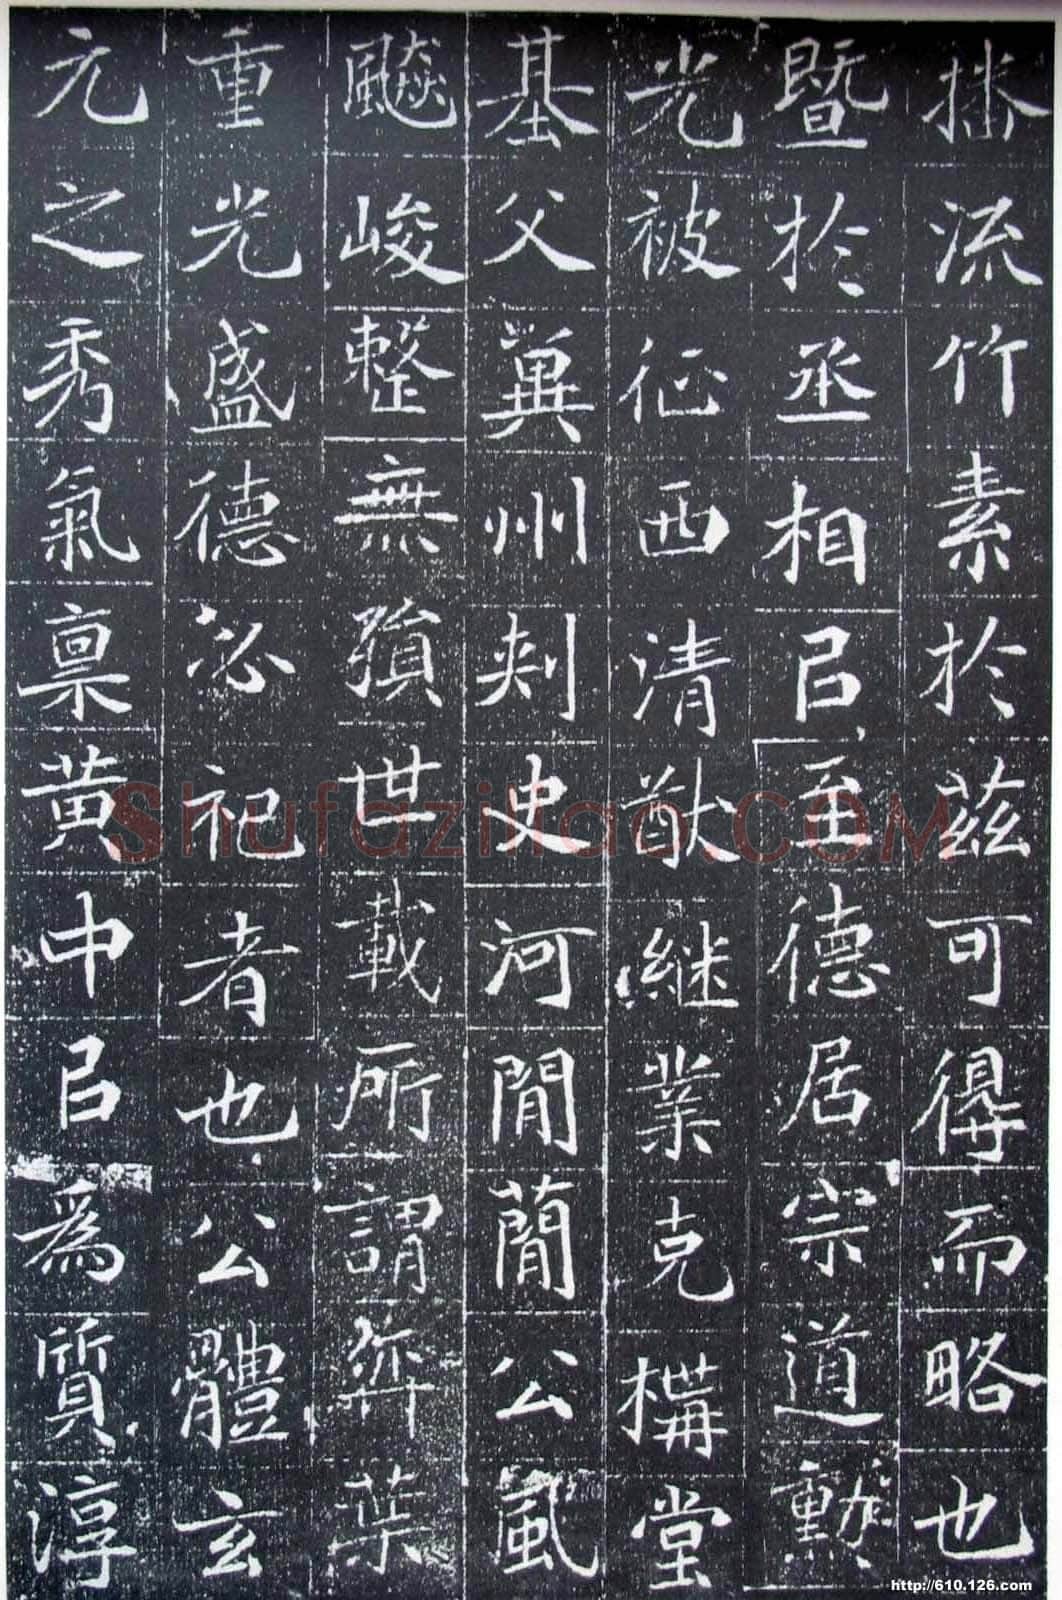 播流竹素於茲可得而略也
暨於丞相㠯至德居宗道勳
光被征西清猷継業克構堂
基父冀州刾史河間簡公風
飈峻整無殞世載所謂弈葉
重光盛德必祀者也公體玄
元之秀氣稟黃中㠯爲質淳
Shufaziliao.COM
http://610.126.com